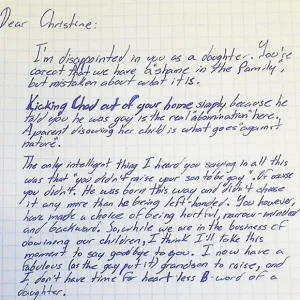 Dear Christine:
I'm disappointed in you as a daughter. You're
correct that we have a "shame in the family",
but mistaken about what it is.
Kicking Chad out of your home simply because he
told you he was gay is the real "abomination" here.
A parent disowning her child is what goes against
nature".
The only intelligent thing I heard you saying in all this
was that "you didn't raise your son to be gay". Of course
you didn't. He was born this way and didn't choose
it any more than he being left-handed. You however,
have made a choice of being hurtful, narrow-minded
and backward. So, while we are in the business of
disowning our children, I think I'll take this
moment to say goodbye to you. I now have a
fabulous (as the gay put it) grandson to raise, and
I don't have time for heart less B-word of a
daughter.